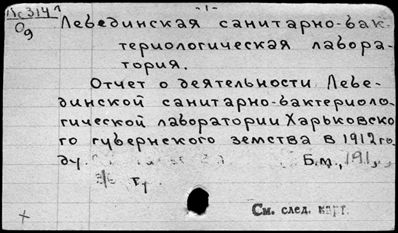 Пс314
Од
-1-
Лебединская санитарно-бак-
териологическая лабора-
тория.
Отчет о деятельности Лебе-
динской санитарно-бактериоло-
гической лаборатории Харьковско-
го губернского земства в 1912 го-
ду.
Б.м.,
См. след. карт.